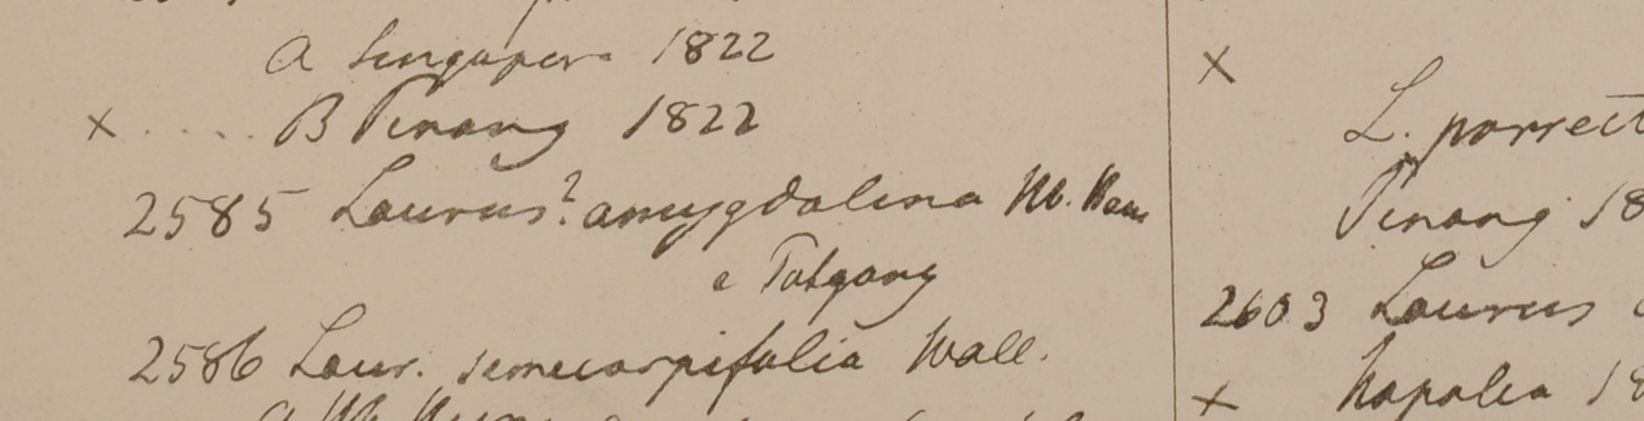 A Singapore 1822
× .... B Pinang 1822
2585 Laurus? amygdalina Hb. Ham
e Tatgong
2586 Laur. semecarpifolia Wall.
×
L. porrect
Pinang 18
2603 Laurus
× Napalia 18